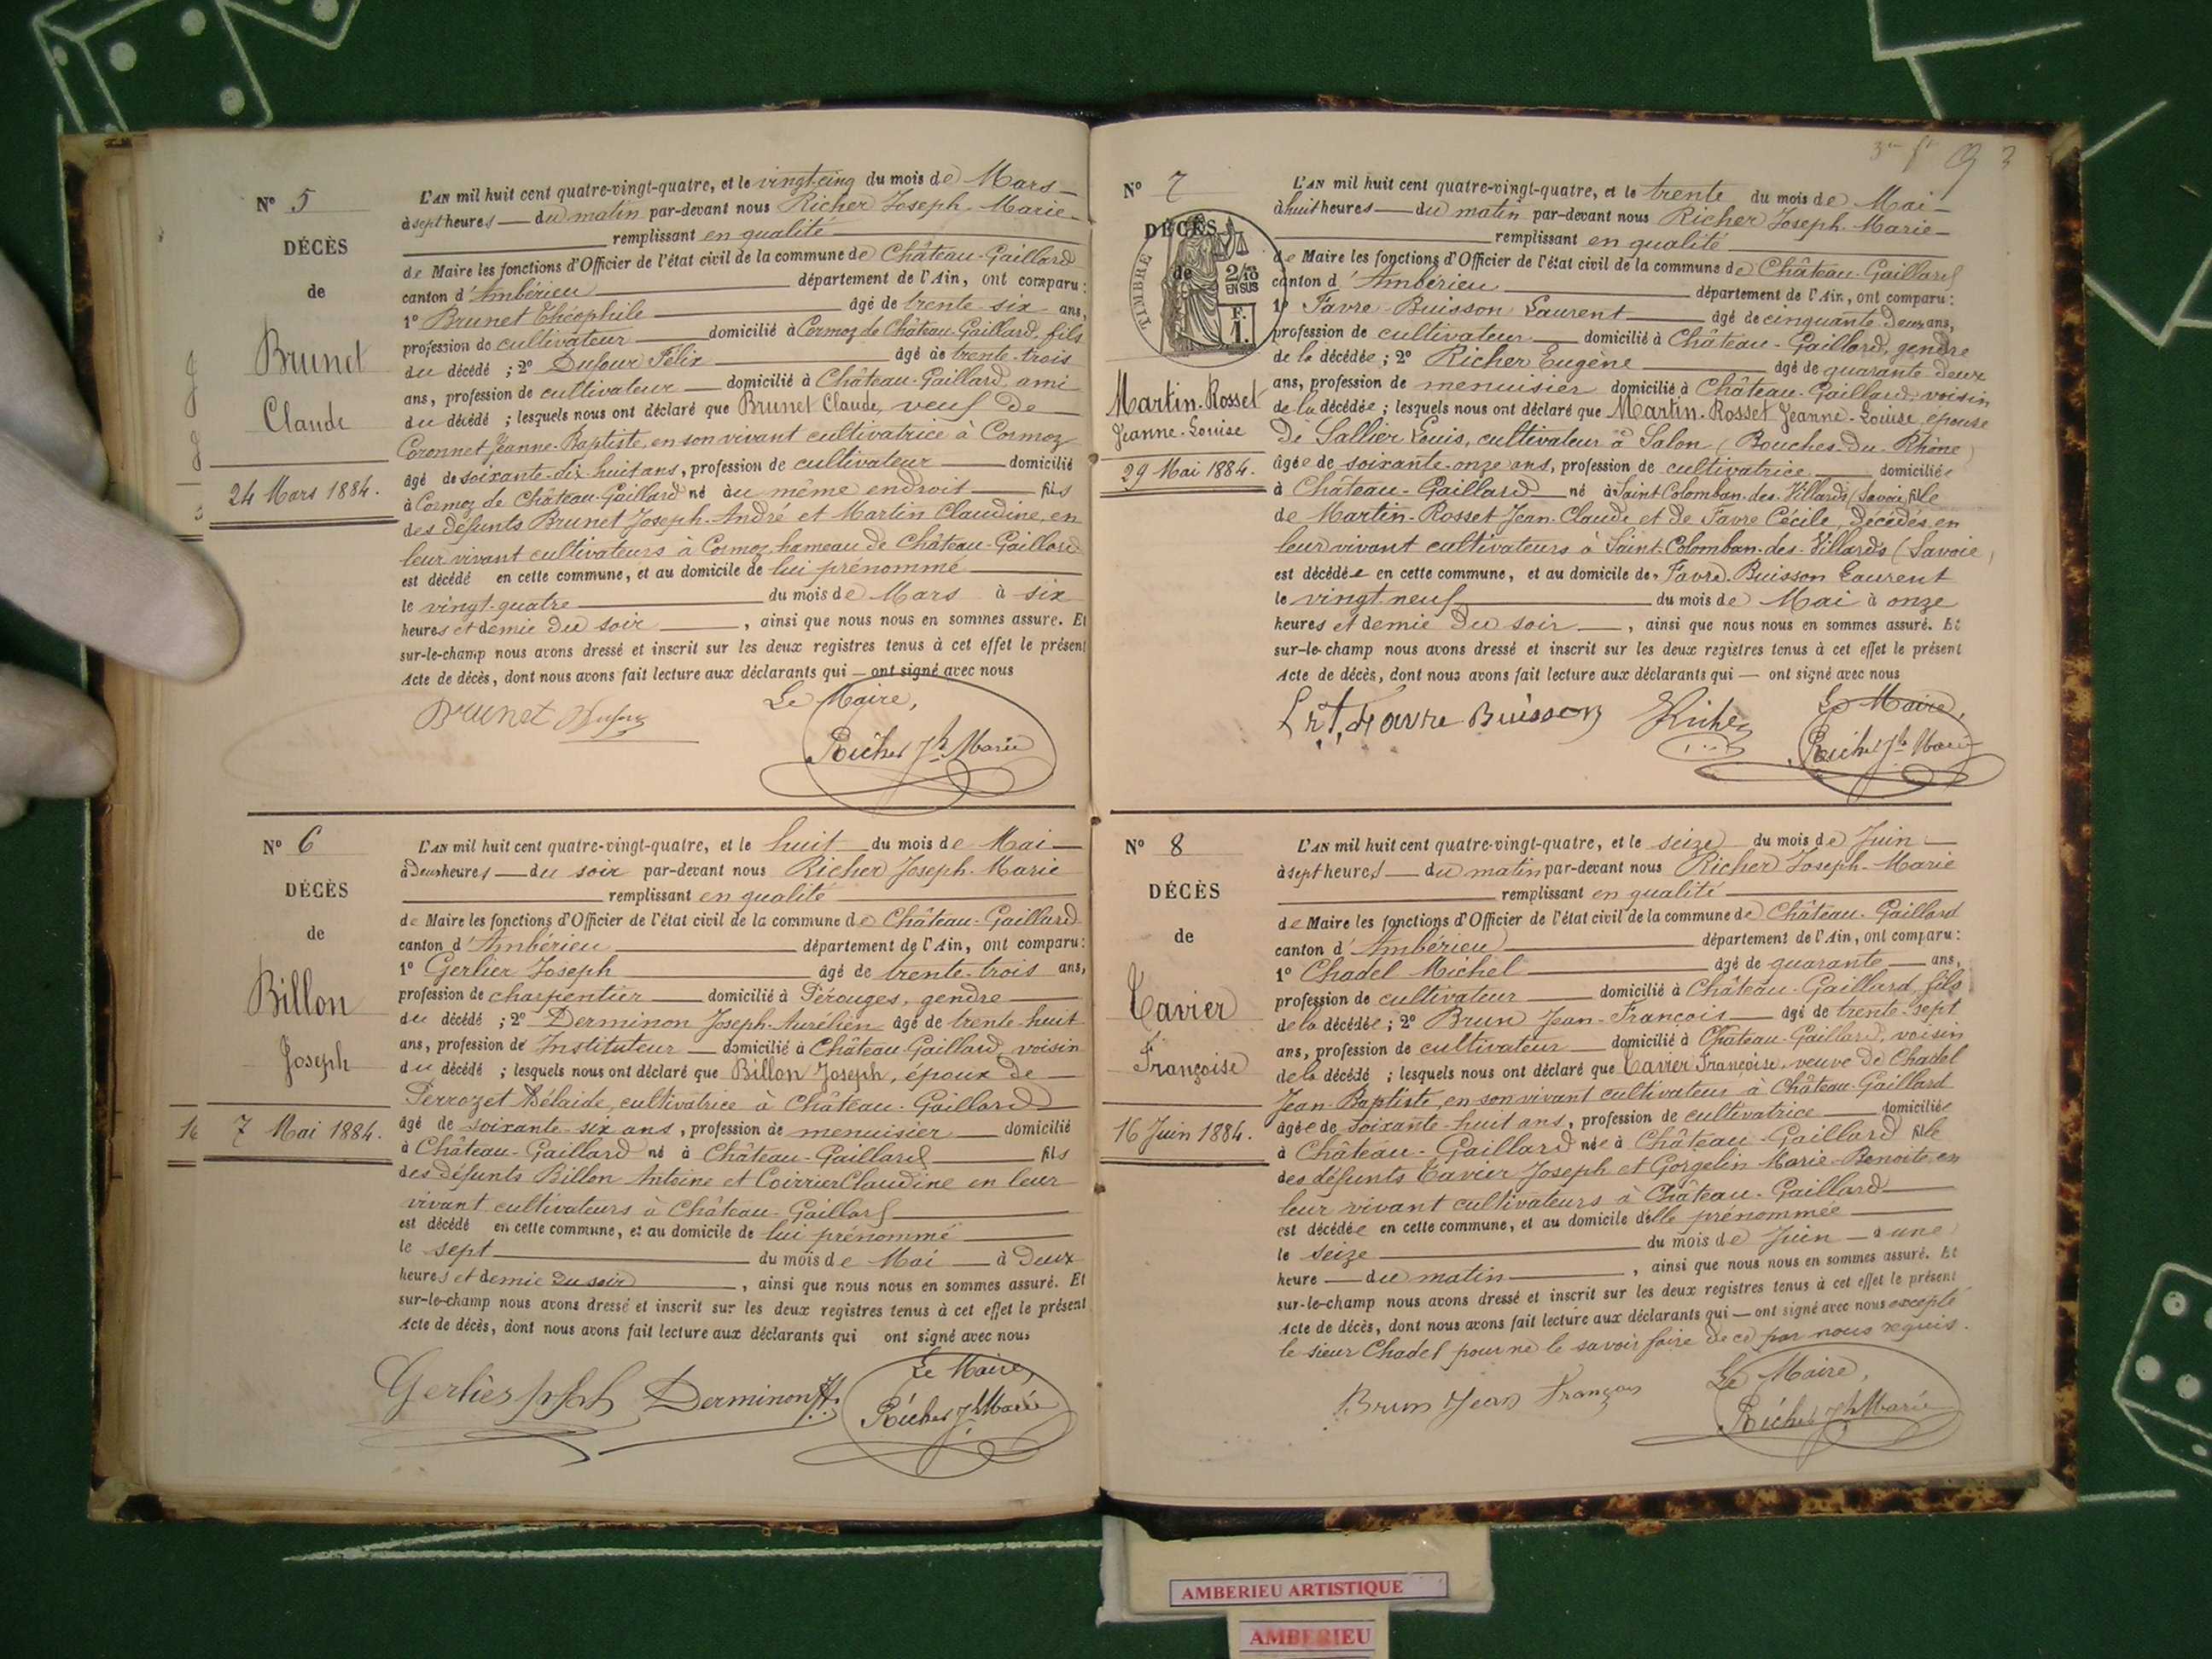 N° 5
DÉCÈS
de
Brunet
Claude
24 Mars 1884.
L'AN mil huit cent quatre-vingt-quatre, et le vingt-cinq du mois de Mars
à sept heures du matin par-devant nous Richer Joseph-Marie
remplissant en qualité
de Maire les fonctions d'Officier de l'état civil de la commune de Château-Gaillard
canton d'Ambérieu département de l'Ain, ont comparu:
1° Brunet Théophile âgé de trente-six ans,
profession de cultivateur domicilié à Cormoz de Château-Gaillard, fils
du décédé ; 2° Dufour Félix âgé de trente-trois
ans, profession de cultivateur domicilié à Château-Gaillard, ami
du décédé ; lesquels nous ont déclaré que Brunet Claude, veuf de
Coronnet Jeanne-Baptiste, en son vivant cultivatrice à Cormoz
âgé de soixante-dix-huit ans, profession de cultivateur domicilié
à Cormoz de Château-Gaillard né au même endroit fils
des défunts Brunet Joseph-André et Martin Claudine, en
leur vivant cultivateurs à Cormoz, hameau de Château-Gaillard
est décédé en cette commune, et au domicile de lui prénommé
le vingt-quatre du mois de Mars à six
heures et demie du soir, ainsi que nous nous en sommes assuré. Et
sur-le-champ nous avons dressé et inscrit sur les deux registres tenus à cet effet le présent
Acte de décès, dont nous avons fait lecture aux déclarants qui — ont signé avec nous
Le Maire,
Brunet Dufour
Richer Jh Marie
N° 6
DÉCÈS
de
Billon
Joseph
16
7 Mai 1884.
L'AN mil huit cent quatre-vingt-quatre, et le huit du mois de Mai
à Deux heures du soir par-devant nous Richer Joseph-Marie
remplissant en qualité
de Maire les fonctions d'Officier de l'état civil de la commune de Château-Gaillard
canton d'Ambérieu département de l'Ain, ont comparu:
1° Gerlier Joseph âgé de trente-trois ans,
profession de charpentier domicilié à Pérouges, gendre
du décédé ; 2° Derminon Joseph-Aurélien âgé de trente-huit
ans, profession de Instituteur domicilié à Château-Gaillard, voisin
du décédé ; lesquels nous ont déclaré que Billon Joseph, époux de
Perrozet Adélaide, cultivatrice à Château-Gaillard
âgé de soixante-six ans, profession de menuisier domicilié
à Château-Gaillard né à Château-Gaillard fils
des défunts Billon Antoine et Coirrier Claudine en leur
vivant cultivateurs à Château-Gaillard
est décédé en cette commune, et au domicile de lui prénommé
le sept du mois de Mai à Deux
heures et demie du soir, ainsi que nous nous en sommes assuré. Et
sur-le-champ nous avons dressé et inscrit sur les deux registres tenus à cet effet le présent
Acte de décès, dont nous avons fait lecture aux déclarants qui ont signé avec nous
Le Maire,
Gerlier Derminon
Richer Jh Marie
N° 7
DÉCÈS
de
TIMBRE
2/10
EN SUS
F.
1.
Martin-Rosset
Jeanne-Louise
29 Mai 1884.
L'AN mil huit cent quatre-vingt-quatre, et le trente du mois de Mai
à huit heures du matin par-devant nous Richer Joseph-Marie
remplissant en qualité
de Maire les fonctions d'Officier de l'état civil de la commune de Château-Gaillard
canton d'Ambérieu département de l'Ain, ont comparu:
1° Favre-Buisson Laurent âgé de cinquante-deux ans,
profession de cultivateur domicilié à Château-Gaillard, gendre
de la décédée ; 2° Richer Eugène âgé de quarante-deux
ans, profession de menuisier domicilié à Château-Gaillard, voisin
de la décédée ; lesquels nous ont déclaré que Martin-Rosset Jeanne-Louise, épouse
de Sallier Louis, cultivateur à Salon (Bouches-du-Rhône)
âgée de soixante-onze ans, profession de cultivatrice domiciliée
à Château-Gaillard né à Saint-Colomban-des-Villards (Savoie) fille
de Martin-Rosset Jean-Claude et de Favre Cécile, décédés, en
leur vivant cultivateurs à Saint-Colomban-des-Villards (Savoie)
est décédée en cette commune, et au domicile de Favre-Buisson Laurent
le vingt-neuf du mois de Mai à onze
heures et demie du soir, ainsi que nous nous en sommes assuré. Et
sur-le-champ nous avons dressé et inscrit sur les deux registres tenus à cet effet le présent
Acte de décès, dont nous avons fait lecture aux déclarants qui — ont signé avec nous
Le Maire,
Lrt Favre Buisson Richer
Richer Jh Marie
N° 8
DÉCÈS
de
Tavier
Françoise
16 Juin 1884.
L'AN mil huit cent quatre-vingt-quatre, et le seize du mois de Juin
à sept heures du matin par-devant nous Richer Joseph-Marie
remplissant en qualité
de Maire les fonctions d'Officier de l'état civil de la commune de Château-Gaillard
canton d'Ambérieu département de l'Ain, ont comparu:
1° Chadel Michel âgé de quarante ans,
profession de cultivateur domicilié à Château-Gaillard, fils
de la décédée ; 2° Brun Jean-François âgé de trente-sept
ans, profession de cultivateur domicilié à Château-Gaillard, voisin
de la décédé ; lesquels nous ont déclaré que Tavier Françoise, veuve de Chadel
Jean-Baptiste, en son vivant cultivateur à Château-Gaillard
âgée de soixante-huit ans, profession de cultivatrice domiciliée
à Château-Gaillard née à Château-Gaillard fille
des défunts Tavier Joseph et Gorgelin Marie-Benoite, en
leur vivant cultivateurs à Château-Gaillard
est décédée en cette commune, et au domicile d'elle prénommée
le seize du mois de Juin à une
heure du matin, ainsi que nous nous en sommes assuré. Et
sur-le-champ nous avons dressé et inscrit sur les deux registres tenus à cet effet le présent
Acte de décès, dont nous avons fait lecture aux déclarants qui — ont signé avec nous excepté
le sieur Chadel pour ne le savoir faire de ce par nous requis.
Le Maire,
Brun Jean François
Richer Jh Marie
AMBERIEU ARTISTIQUE
AMBERIEU